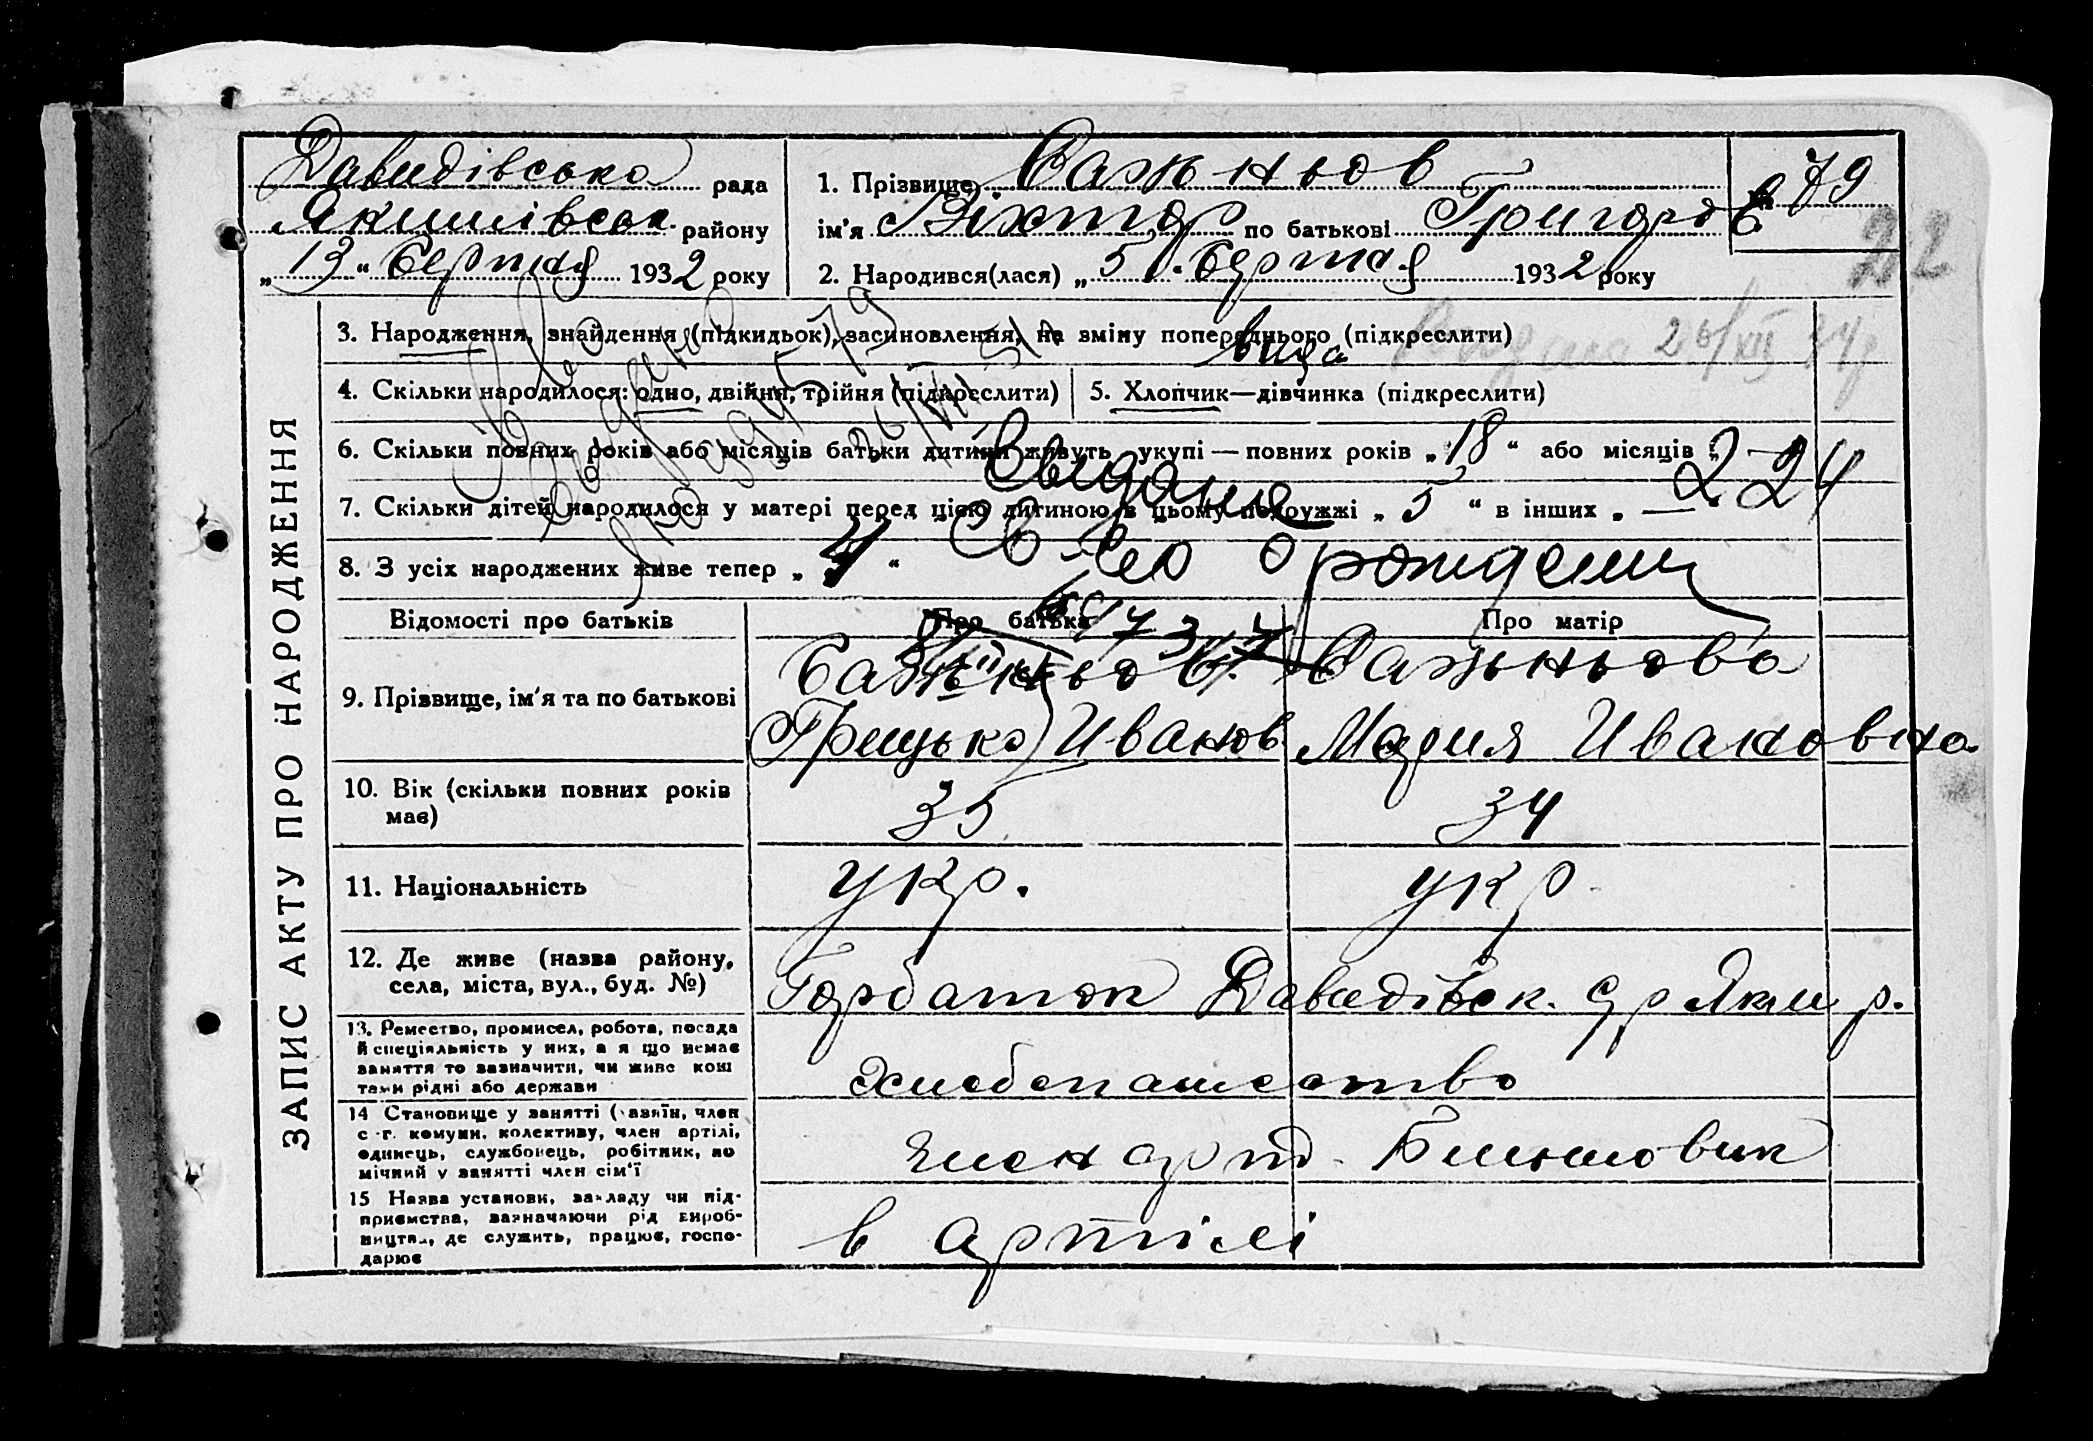 Давидівська рада
Якимівськ. району
„13“ Березня 1932 року
1. Прізвище Сажньов
ім'я Віктор по батькові Григоров
2. Народився(лася) „5“ Березня 1932 року
№ 79
22
ЗАПИС АКТУ ПРО НАРОДЖЕННЯ
3. Народження, знайдення (підкидьок), засиновлення, на зміну попереднього (підкреслити)
26/XII 34
4. Скільки народилося: одно, двійня, трійня (підкреслити)
5. Хлопчик—дівчинка (підкреслити)
6. Скільки повних років або місяців батьки дитини живуть укупі — повних років „18“ або місяців „
7. Скільки дітей народилося у матері перед цією дитиною в цьому подружжі „5“ в інших „ —
8. З усіх народжених живе тепер „4“
св-во о рождении
Відомості про батьків
Про батька
Про матір
9. Прізвище, ім'я та по батькові
Сажньов Сажньова
Грицько Иванов. Мария Ивановна
10. Вік (скільки повних років має)
35 34
11. Національність
укр. укр.
12. Де живе (назва району,
села, міста, вул., буд. №)
Горбаток Давидівськ. с/р Яким р.
13. Ремество, промисел, робота, посада
й спеціяльність у них, а я що немає
заняття то зазначити, чи живе кош
тами рідні або держави
Хлебопашество
14 Становище у занятті (хазяїн, член
с-г. комуни, колективу, член артілі,
одинець, службовець, робітник, по
мічний у занятті член сім'ї
член арт. Більшовик
15 Назва установи, закладу чи під-
приємства, зазначаючи рід вироб-
ництва, де служить, працює, госпо-
дарює
в артілі